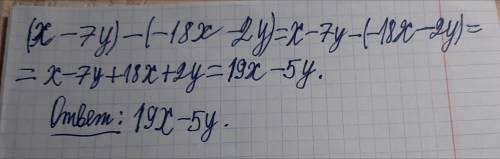 (x - 7y) - (-18x - 2y) = x - 7y - (-18x - 2y) =
= x - 7y + 18x + 2y = 19x - 5y.
Ответ: 19x - 5y.